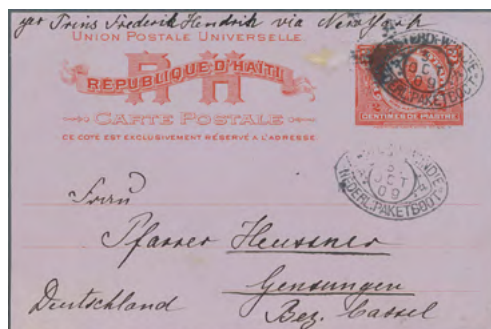 per Prins Frederik Hendrik via New York
UNION POSTALE UNIVERSELLE
RH
RÉPUBLIQUE D'HAÏTI
CARTE POSTALE
CE COTÉ EST EXCLUSIVEMENT RÉSERVÉ A L'ADRESSE.
CENTIMES DE PIASTRE
OCT
09
NEDERL:PAKETBOOT
OCT
09
NEDERL:PAKETBOOT
Frau
Pfarrer Heussner
Gensungen
Deutschland
Bez. Cassel